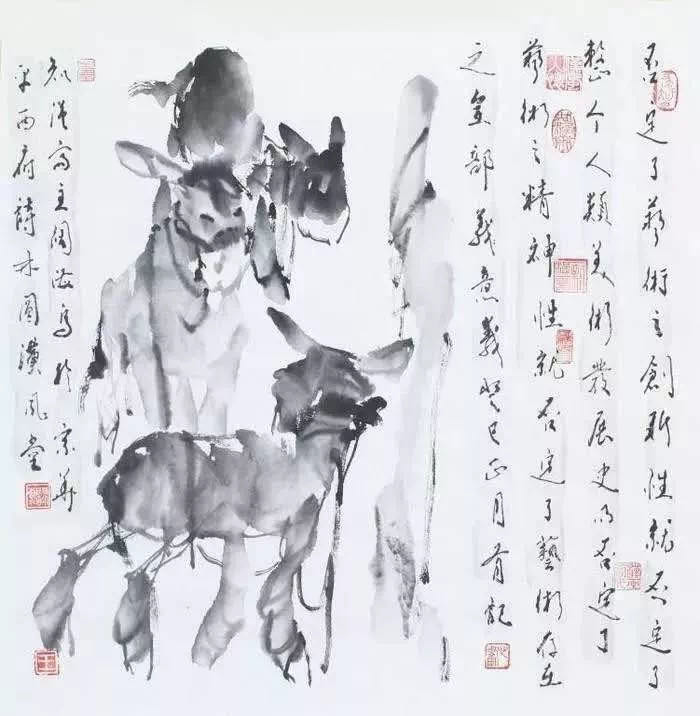 否定了藝術之創新性就否定了
整个人類美術發展史而否定了
藝術之精神性就否定了藝術存在
之全部義意義癸巳正月記
漢齋主寫於京華
平西府詩林園漢風堂